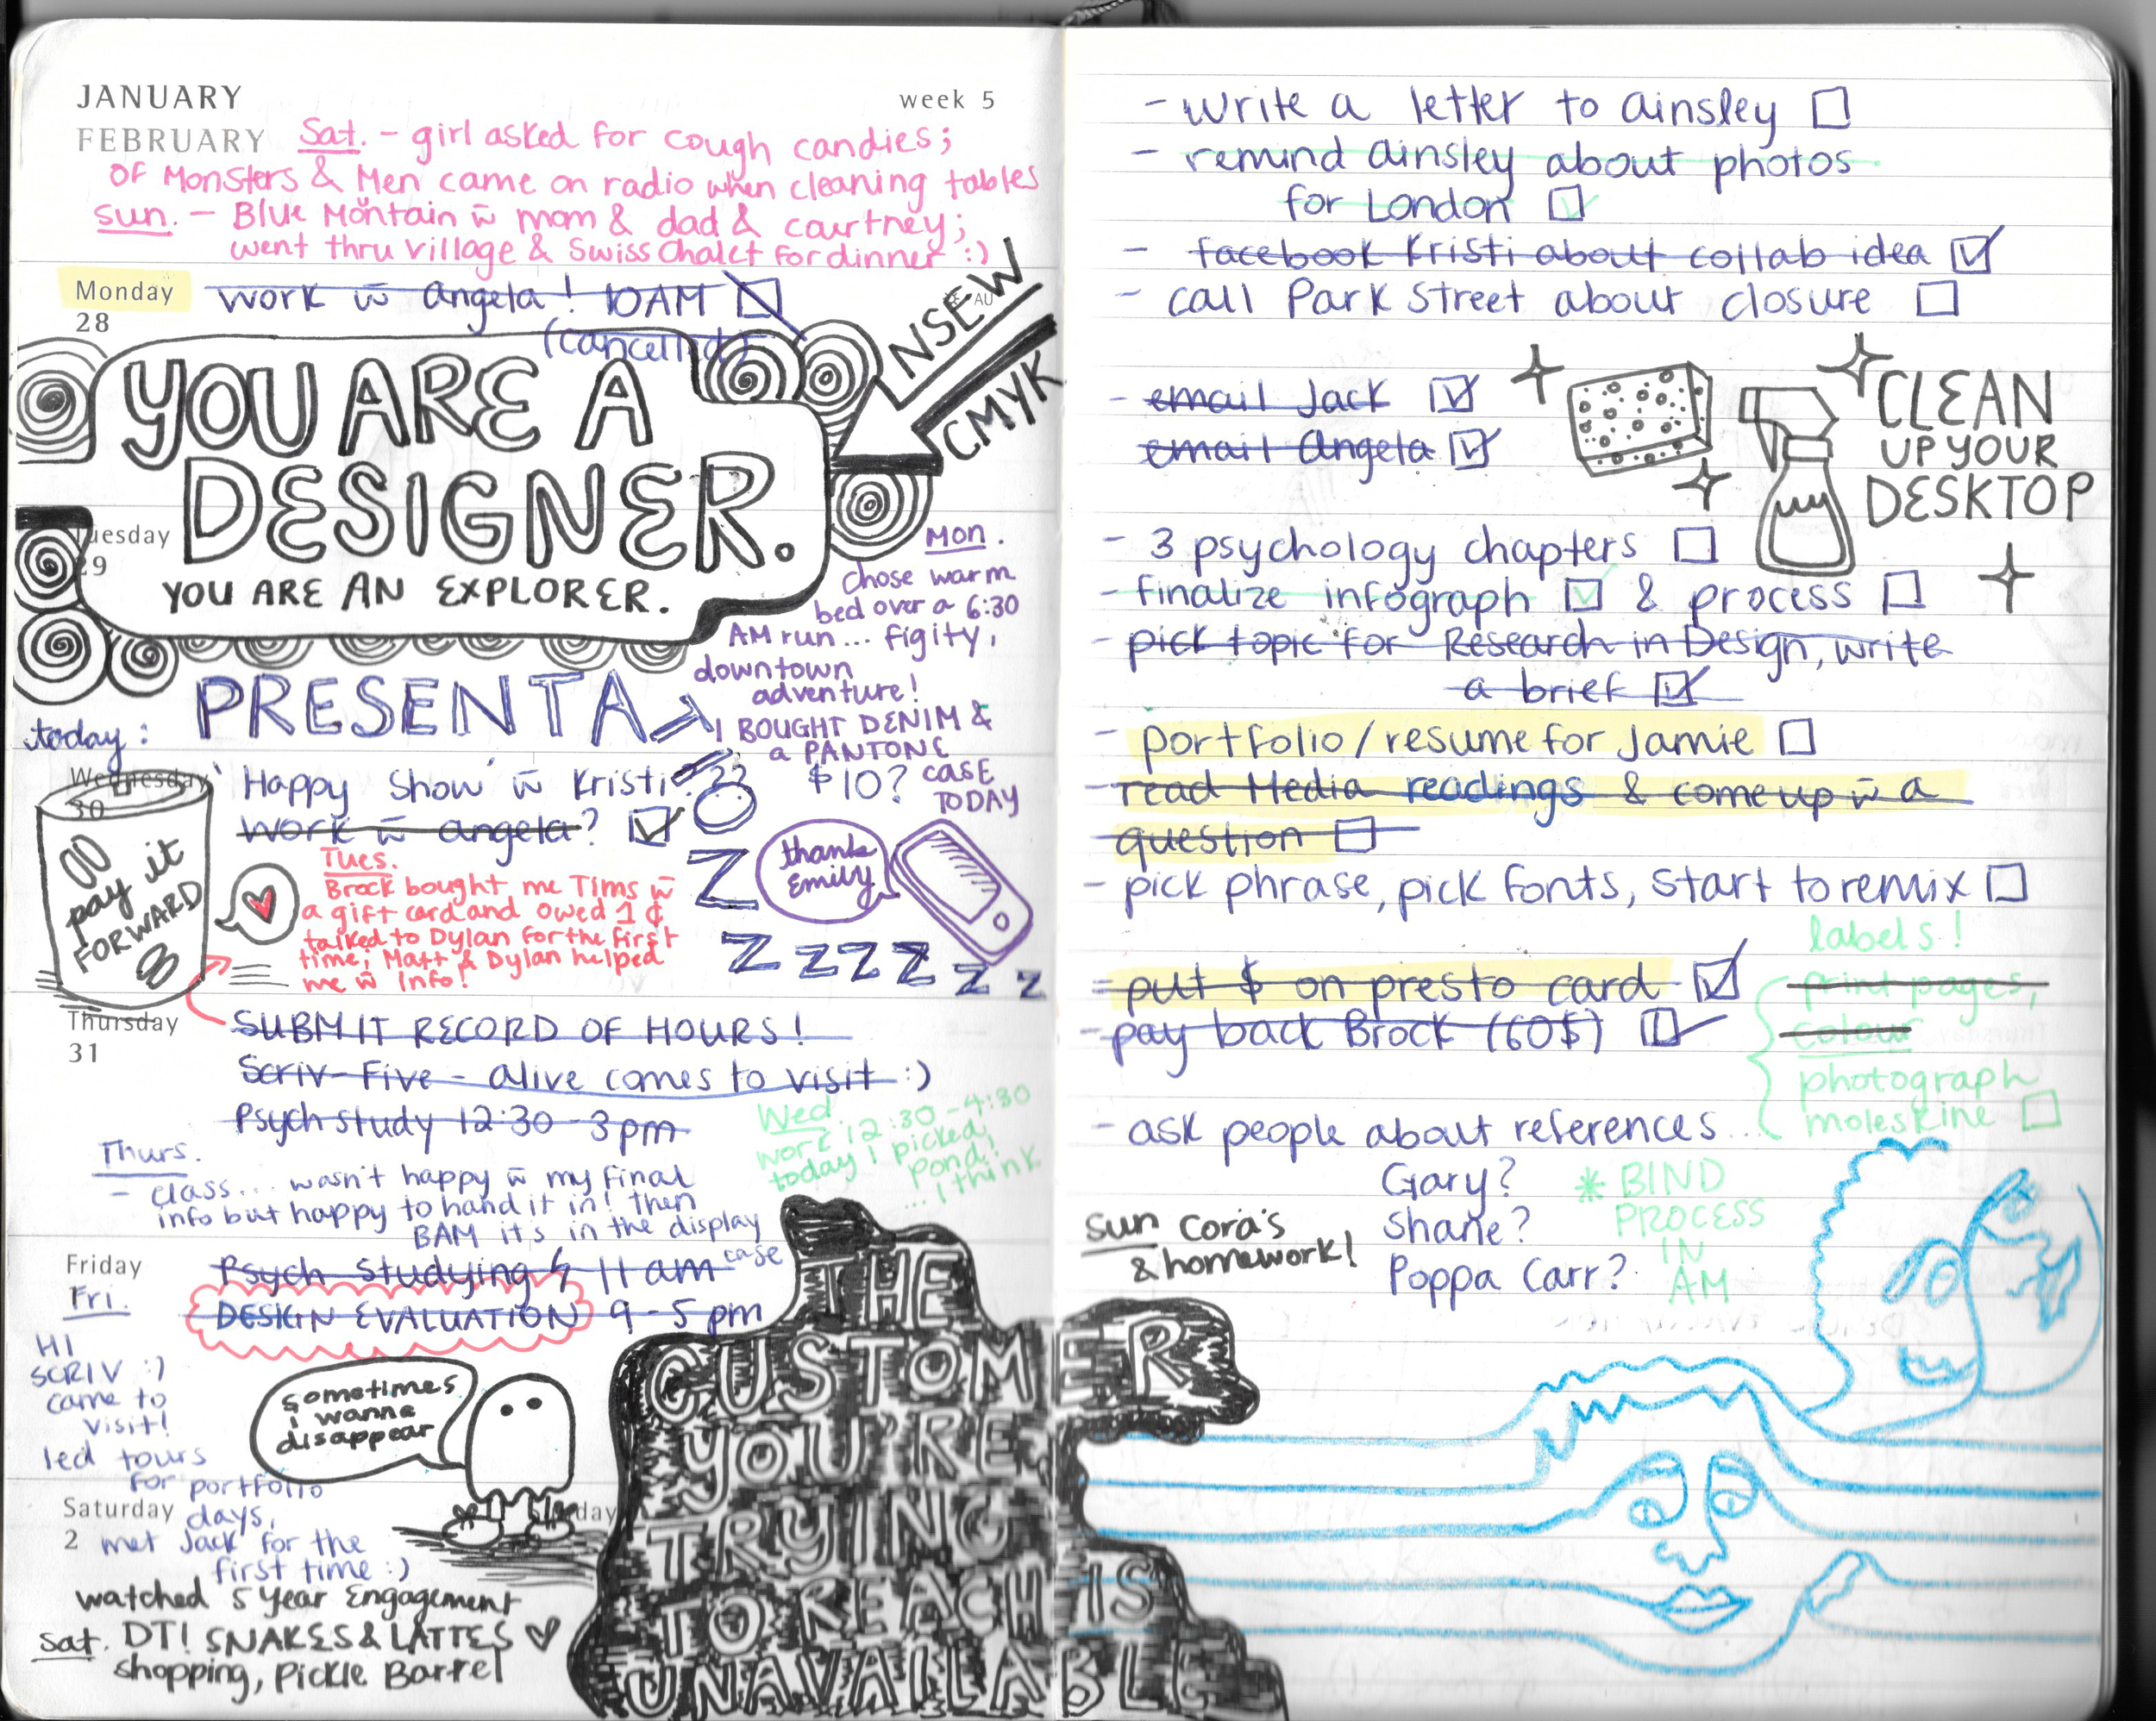 JANUARY
FEBRUARY
week 5
Sat. - girl asked for cough candies;
OF Monsters & Men came on radio when cleaning tables
Sun. - Blue Montain w̄ mom & dad & courtney;
went thru village & Swiss Chalet for dinner :)
Monday
28
work w̄ angela! 10AM
(cancelled)
AU
NSEW
CMYK
YOU ARE A
DESIGNER.
YOU ARE AN EXPLORER.
Tuesday
29
Mon.
chose warm
bed over a 6:30
AM run... figity,
downtown
adventure!
I BOUGHT DENIM &
a PANTONE
CASE
TODAY
PRESENTA
today:
Wednesday
30
'Happy Show' w̄ Kristi?
$10?
work w̄ angela?
pay it
FORWARD
Tues.
Brock bought me Tims w̄
a gift card and owed 1 ¢
talked to Dylan for the first
time; Matt & Dylan helped
me w̄ info!
thanks
Emily
Z Z Z Z Z Z Z
Thursday
31
SUBMIT RECORD OF HOURS!
Scriv Five - alive comes to visit :)
Psych study 12:30 - 3pm
Wed.
work 12:30 - 4:30
today I picked
pond!
...I think
Thurs.
- class... wasn't happy w̄ my final
info but happy to hand it in! then
BAM it's in the display
case
Friday
Psych studying 11am
DESIGN EVALUATION 9 - 5 pm
Fri.
HI
SCRIV :)
came to
visit!
led tours
for portfolio
days,
met Jack for the
first time :)
Saturday
2
day
sometimes
i wanna
disappear
watched 5 Year Engagement
Sat. DT! SNAKES & LATTES ♡
shopping, Pickle Barrel
THE
CUSTOMER
YOU'RE
TRYING
TO REACH IS
UNAVAILABLE
- write a letter to ainsley
- remind ainsley about photos
for London
- facebook Kristi about collab idea
- call Park Street about closure
- email Jack
- email Angela
CLEAN
UP YOUR
DESKTOP
- 3 psychology chapters
- finalize infograph & process
- pick topic for Research in Design, write
a brief
- portfolio/resume for Jamie
- read Media readings & come up w̄ a
question
- pick phrase, pick fonts, start to remix
labels!
print pages,
colour
photograph
moleskine
- put $ on presto card
- pay back Brock (60$)
- ask people about references...
Gary?
Shane?
Poppa Carr?
* BIND
PROCESS
IN
AM
Sun Cora's
& homework!